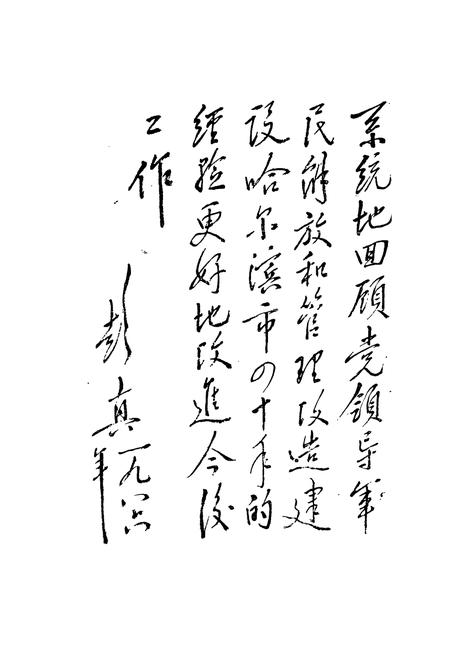 系统地回顾党领导军
民解放和管理改造建
设哈尔滨市四十年的
經验更好地改進今後
工作
彭真一九八六年